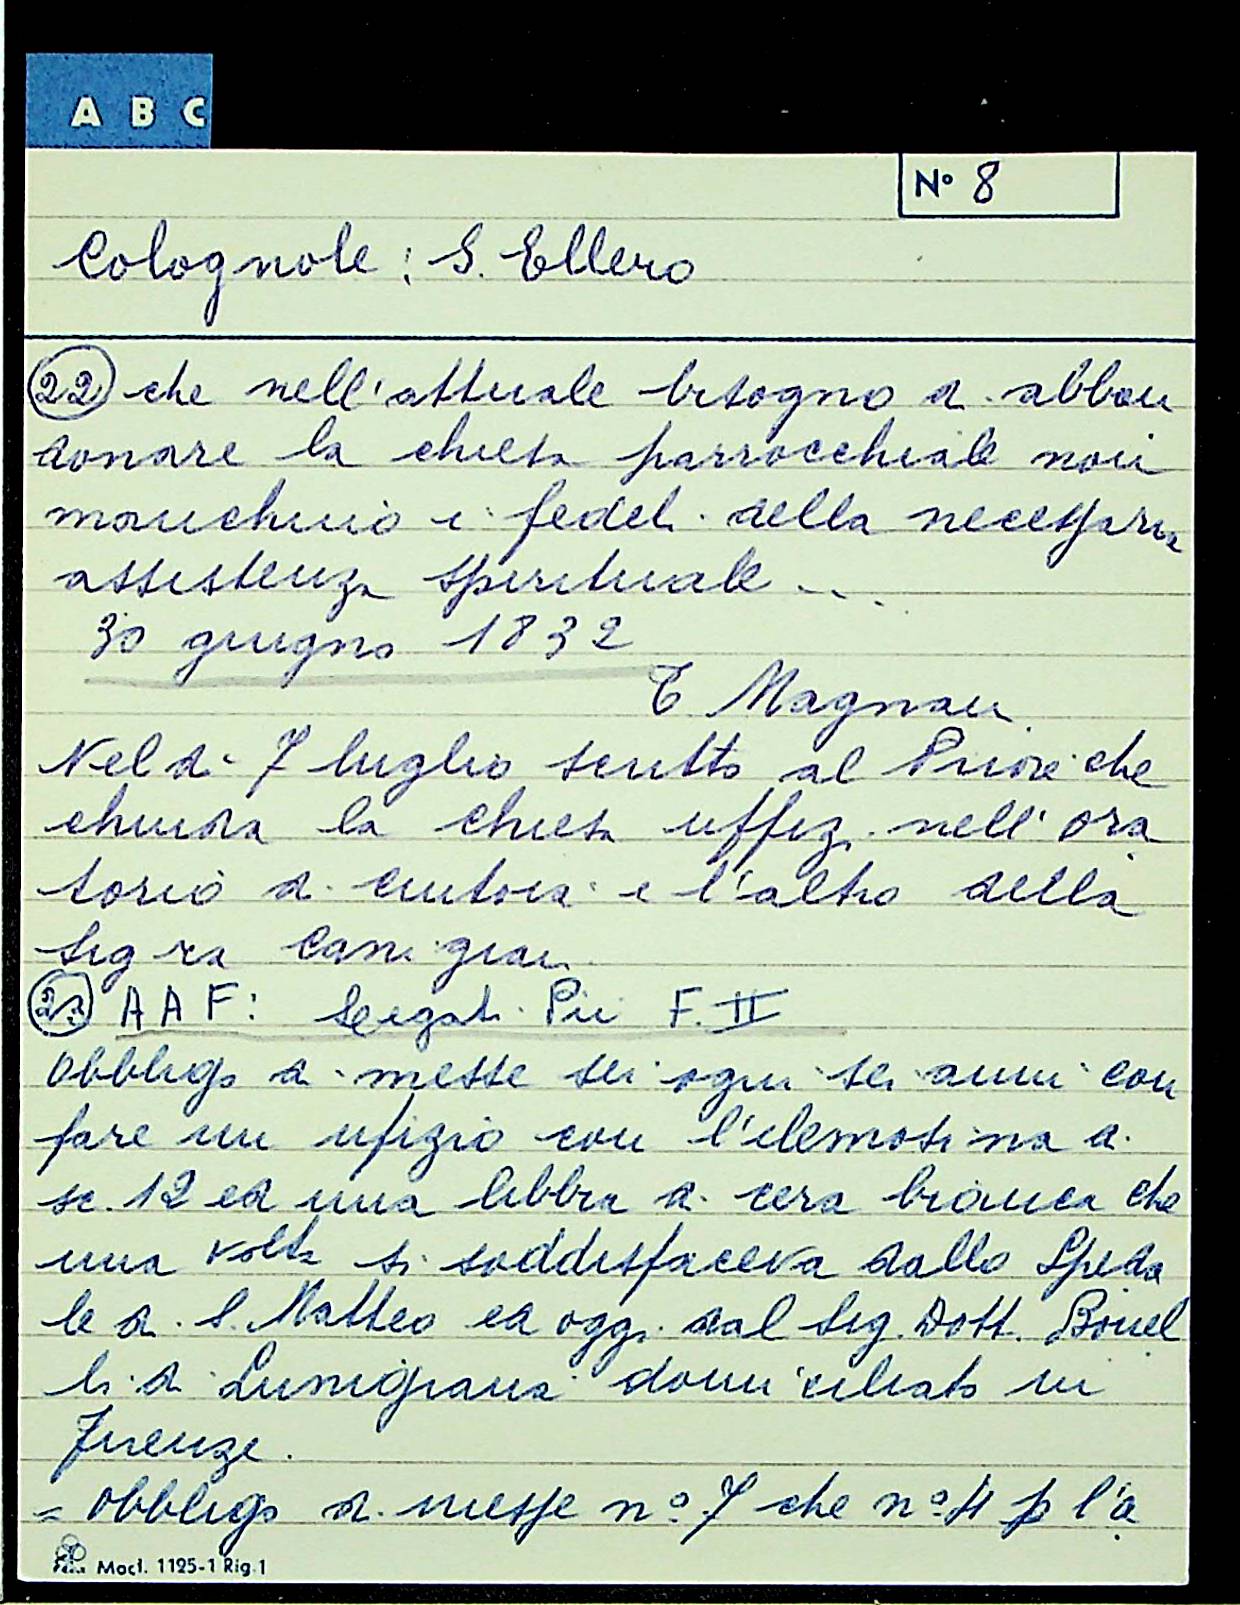 A B C
Nº 8
Colognole: S. Ellero
(22) che nell'attuale bisogno di abban
donare la chiesa parrocchiale non
manchino i fedeli della necessaria
assistenza spirituale ...
30 giugno 1832
T Magnani
Nel dì 7 luglio scritto al Priore che
chiuda la chiesa uffiz. nell'ora
torio di e l'altro della
Sigra Canigiani
(23) AAF: Pii F. II
Obbligo di messe sei ogni sei anni con
fare un ufizio con l'elemosina di
sc. 12 ed una libbra di cera bianca che
una volta si soddisfaceva dallo Speda
le di S. Matteo ed oggi dal Sig. Dott. Bonel
li di Lunigiana domiciliato in
Firenze.
= Obbligo di messe nº 7 che nº 4 p l'a
Mod. 1125-1 Rig.1